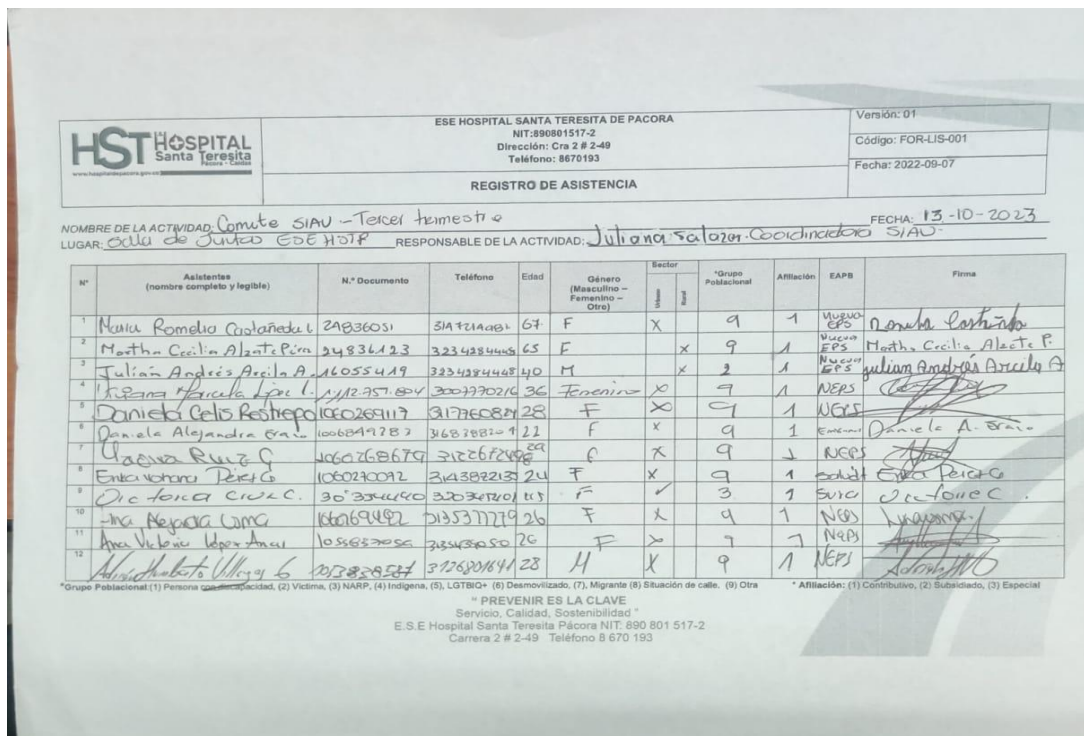 HST HOSPITAL
Santa Teresita
Pácora - Caldas
www.hospitaldepacora.gov.co
ESE HOSPITAL SANTA TERESITA DE PACORA
NIT:890801517-2
Dirección: Cra 2 # 2-49
Teléfono: 8670193
REGISTRO DE ASISTENCIA
Versión: 01
Código: FOR-LIS-001
Fecha: 2022-09-07
NOMBRE DE LA ACTIVIDAD: Comite SIAU - Tercer trimestre FECHA: 13-10-2023
LUGAR: Salla de Juntas ESE HSTP RESPONSABLE DE LA ACTIVIDAD: Juliana Salazar Coordinadora SIAU.
N° Asistentes (nombre completo y legible) N.° Documento Teléfono Edad Género (Masculino – Femenino – Otro) Sector Urbano Rural *Grupo Poblacional Afiliación EAPB Firma
1 Maria Romelia Castañeda L 24836051 67 F X 9 1 Nueva EPS Romelia Castañeda
2 Martha Cecilia Alzate 24836123 3234284448 65 F X 9 1 Nueva EPS Martha Cecilia Alzate P.
3 Julián Andrés Arcila A. 16055419 3234284448 40 M X 2 1 Nueva EPS Julian Andrés Arcila A
4 Marcela 1.112.757.804 3007770216 36 Femenino X 9 1 NEPS
5 Daniela Celis Restrepo 1060269117 28 F X 9 1 NEPS
6 Daniela Alejandra 22 F X 9 1 Daniela A.
7 Ruiz G 1060268679 29 F X 9 1 NEPS
8 Perez G 1060270092 3143892213 24 F X 9 1 Erika Perez G
9 C. F ✓ 3 1 Sura
10 Alejandra 26 F X 9 1 NEPS
11 Ana Victoria Lopez 26 F X 9 1 NEPS
12 Humberto Villegas G 3126801641 28 M X 9 1 NEPS
*Grupo Poblacional (1) Persona con discapacidad, (2) Victima, (3) NARP, (4) Indígena, (5), LGTBIQ+ (6) Desmovilizado, (7), Migrante (8) Situación de calle. (9) Otra * Afiliación: (1) Contributivo, (2) Subsidiado, (3) Especial
" PREVENIR ES LA CLAVE
Servicio, Calidad, Sostenibilidad "
E.S.E Hospital Santa Teresita Pácora NIT: 890 801 517-2
Carrera 2 # 2-49 Teléfono 8 670 193